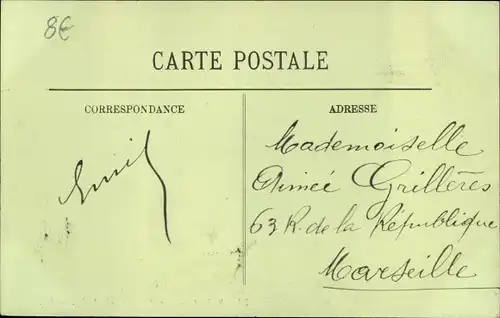 8€
CARTE POSTALE
CORRESPONDANCE
ADRESSE
Emil
Mademoiselle
Aimée Grillères
63 R. de la République
Marseille